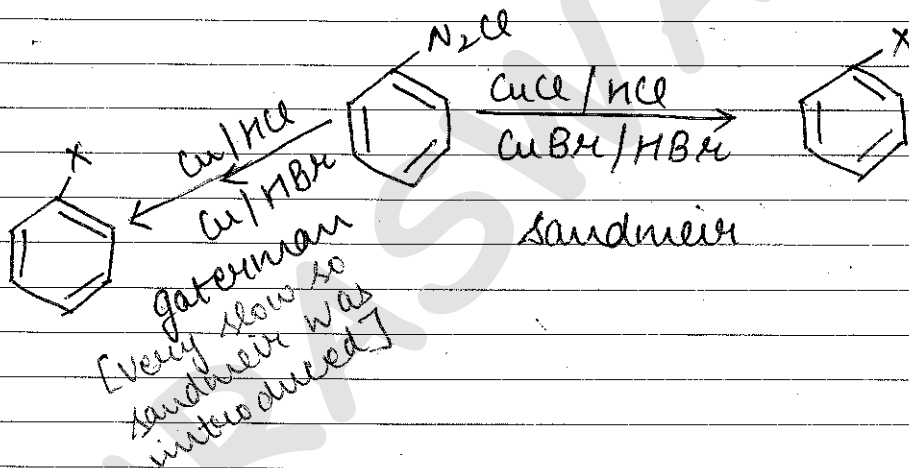 N₂Cl
X
CuCl/HCl
CuBr/HBr
sandmeir
Cu/HCl
Cu/HBr
X
gaterman
[very slow so
sandmeir was
introduced]